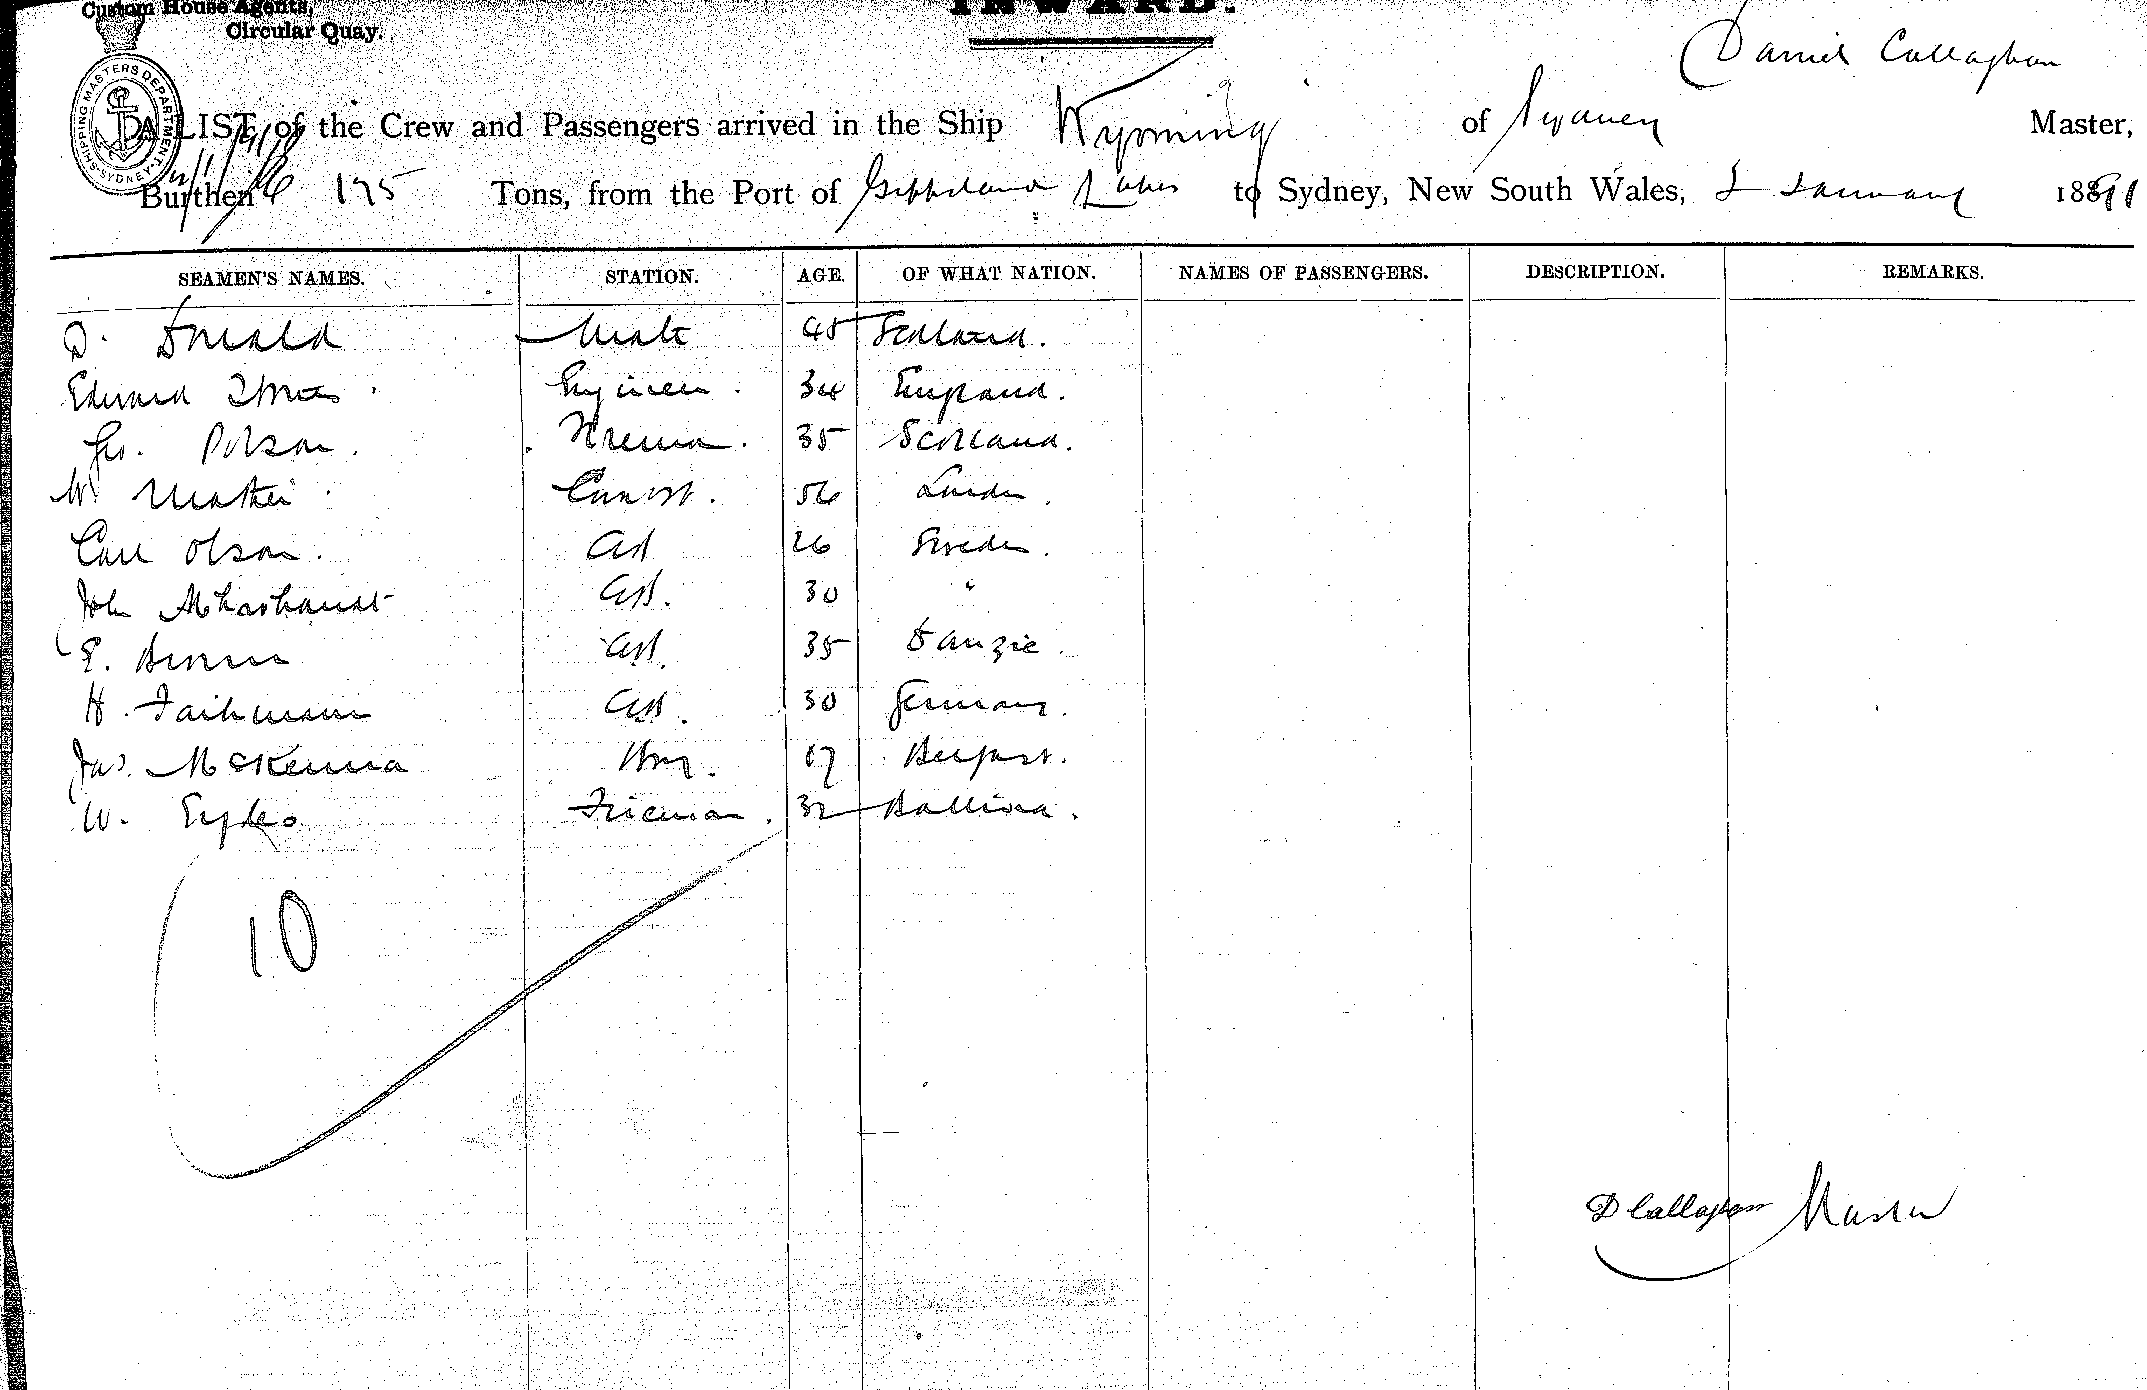 Custom House Agents,
Circular Quay.
INWARD.
Daniel Callaghan
SHIPPING MASTERS DEPARTMENT SYDNEY
A LIST of the Crew and Passengers arrived in the Ship Wyoming of Sydney Master,
Burthen 175 Tons, from the Port of Gippsland Lakes to Sydney, New South Wales, 2 January 1891
SEAMEN'S NAMES. STATION. AGE. OF WHAT NATION. NAMES OF PASSENGERS. DESCRIPTION. REMARKS.
D. Donald Mate 45 Scotland.
Edward Engineer. 34 England.
Geo. Polson. Fireman. 35 Scotland.
W Mather 56 London.
Carl Olson. AB 26 Sweden.
John AB. 30 "
E. AB. 35 Danzic.
H. AB. 30 Germany.
Jas. McKenna Boy. 17 Belfast.
W. Fireman. 32 Ballina.
10
D Callaghan Master